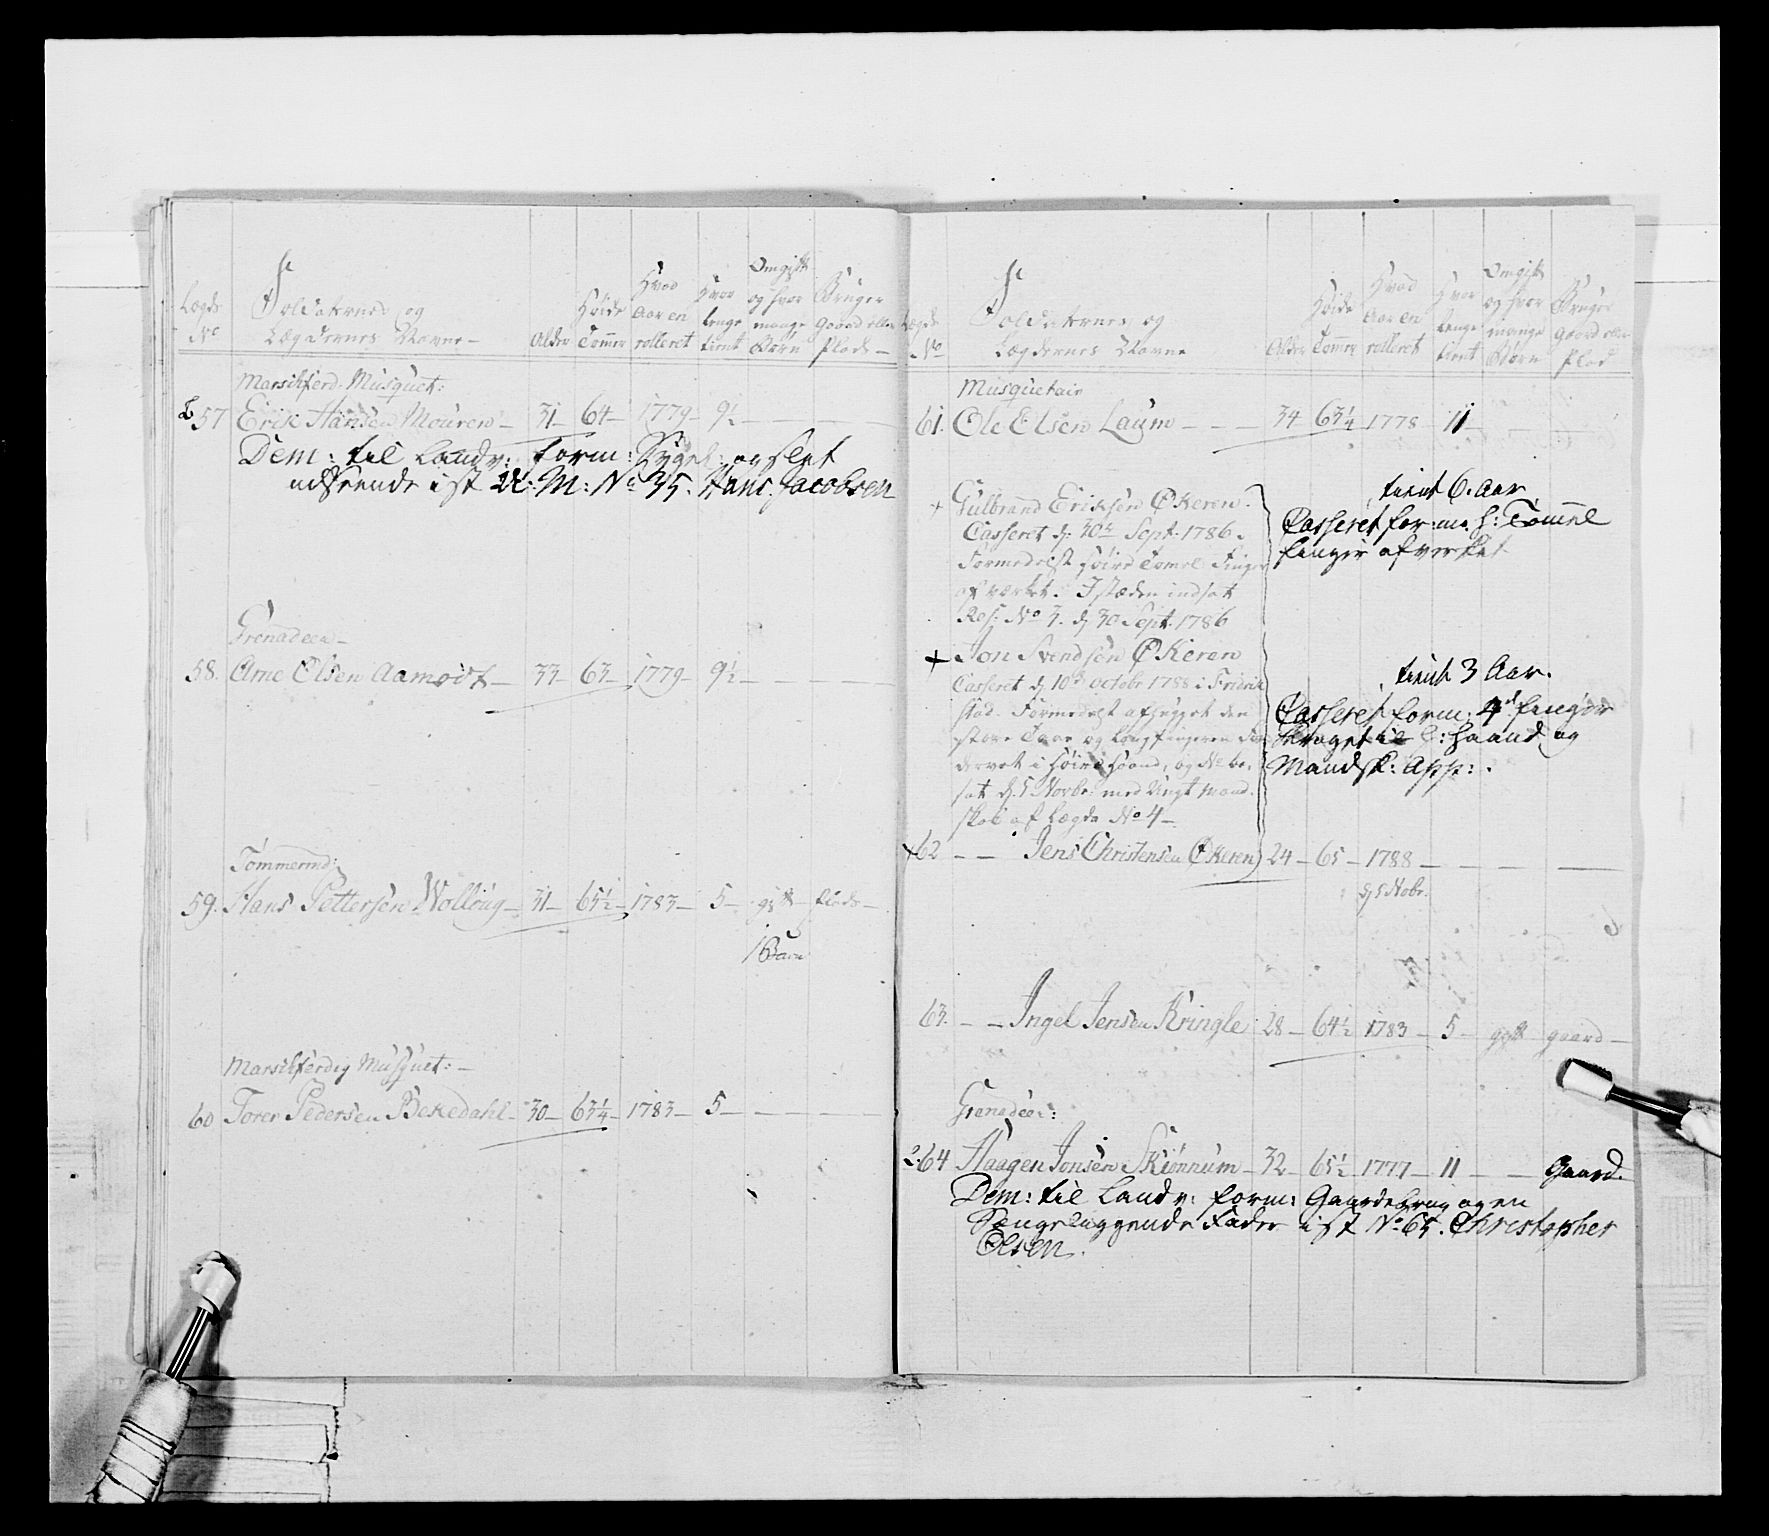 Lægds No
Soldaternes og Lægdernes Navne
Alder
Høide Tommer
Hvad Aar en rolleret
Hvor lenge tient
Omgift og hvor mange Børn
Bruger Gaard eller Plads
Marschferd. Musquet:
57 Erik Hansen Mouren 31 64 1779 9½
Dem: til Landv: form: Sygel: og slet
udseende i st U: M: No 35. Hans Jacobsen
Grenadeer
58. Arne Olsen Aamodt 33 63 1779 9½
Tømmermd:
59. Hans Pettersen Wolloug 31 65½ 1783 5 gift Plads
1 Barn
Marschferdig Musquet:
60 Torer Pedersen Bekedahl 30 63¼ 1783 5
Lægds No
Soldaternes og Lægdernes Navne
Alder
Høide Tommer
Hvad Aar en rolleret
Hvor lenge tient
Omgift og hvor mange Børn
Bruger Gaard eller Plads
Musquetair
61. Ole Elsen Laum 34 63¼ 1778 11
+ Gulbrand Eriksen Økeren.
Casseret d: 30te Sept. 1786.
Formedelst høire Tomel Finger
af verket. I stæden indsat
Res: No 3. d 30 Sept. 1786
tient 6. Aar
Casseret for:me. h: Tommel
finger afverket
+ Jon Svendsen Økeren
Casseret d 10de Octobr 1788 i Fridrik
stad. Formedelst afhugget den
store Taae og Langfingeren
dervet i høire Haand, og No be-
sat d. 5 Novbr: med Ungt Mand-
skab af Lægde No 4
tient 3 Aar.
Casseret form: 4de finger
h: Haand og
Mandsk: App:
+62 Jens Christensen Økeren 24 65 1788
d 5 Nobr.
63. Ingel Jensen Kringle 28 64½ 1783 5 gift gaard
Grenadeer:
64 Haagen Jonsen Skiønnum 32 65½ 1777 11 Gaard.
Dem: til Landv: form: Gaardebrug og en
Sængeliggende Fader i st No 65. Christopher
Olsen.